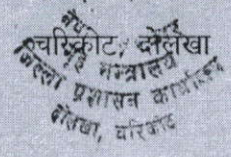 चरिकोट, दोलखा
गृह मन्त्रालय
जिल्ला प्रशासन कार्यालय
दोलखा, चरिकोट